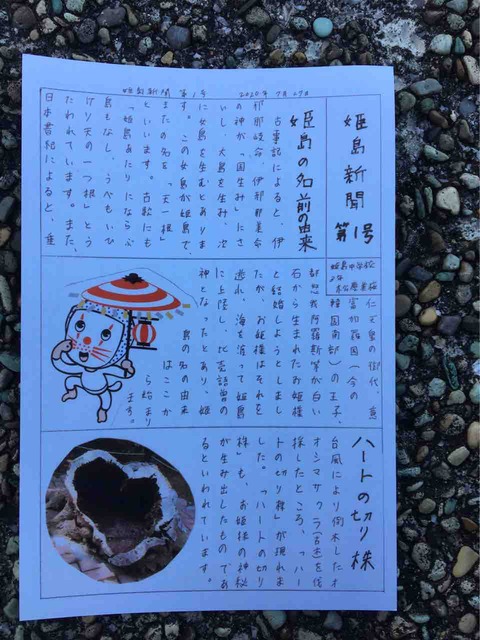 姫島新聞 第1号 2020年7月27日
姫島新聞
第1号
姫島の名前の由来
古事記によると、伊
邪那岐命、伊邪那美命
の神が「国生み」にさ
いし、大島を生み、次
に女島を生むとありま
す。この女島が姫島で、
またの名を「天一根」
といいます。古歌にも
「姫島あたりにならぶ
島もなし、うべもいひ
けり天の一つ根」とう
たわれています。また、
日本書紀によると、垂
姫島中学校
2年
仁天皇の御代、意
富加羅国(今の
韓国南部)の王子、
都怒我阿羅斯等が白い
石から生まれたお姫様
と結婚しようとしまし
たが、お姫様はそれを
逃れ、海を渡って姫島
に上陸し、比売語曽の
神となったとあり、姫
島の名の由来
はここか
ら始まり
ます。
ハートの切り株
台風により倒木したオ
オシマザクラ古志を伐
採したところ、「ハー
トの切り株」が現れま
した。「ハートの切り
株」も、お姫様の神秘
が生み出したものであ
るといわれています。